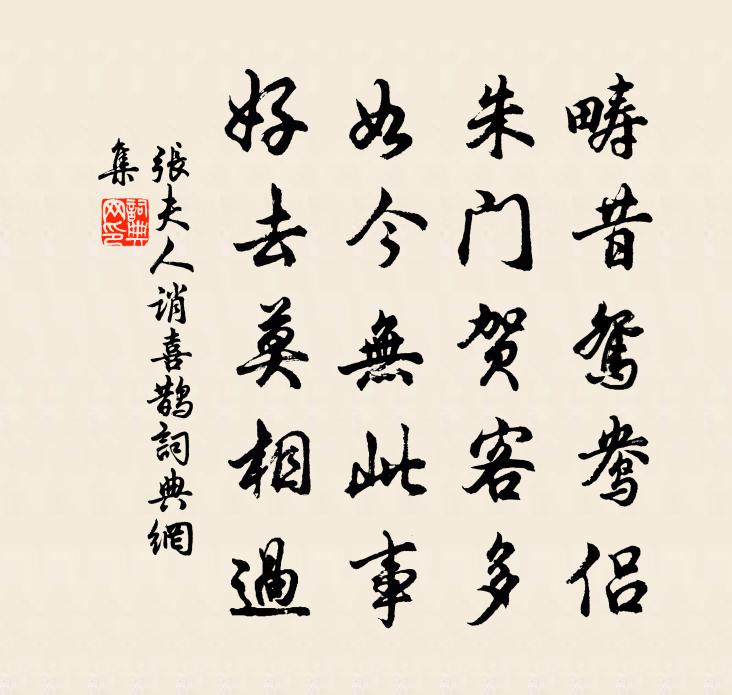 疇昔鴛鴦侶
朱门贺客多
如今無此事
好去莫相過
張夫人诮喜鹊詞典網
集
詞典网印